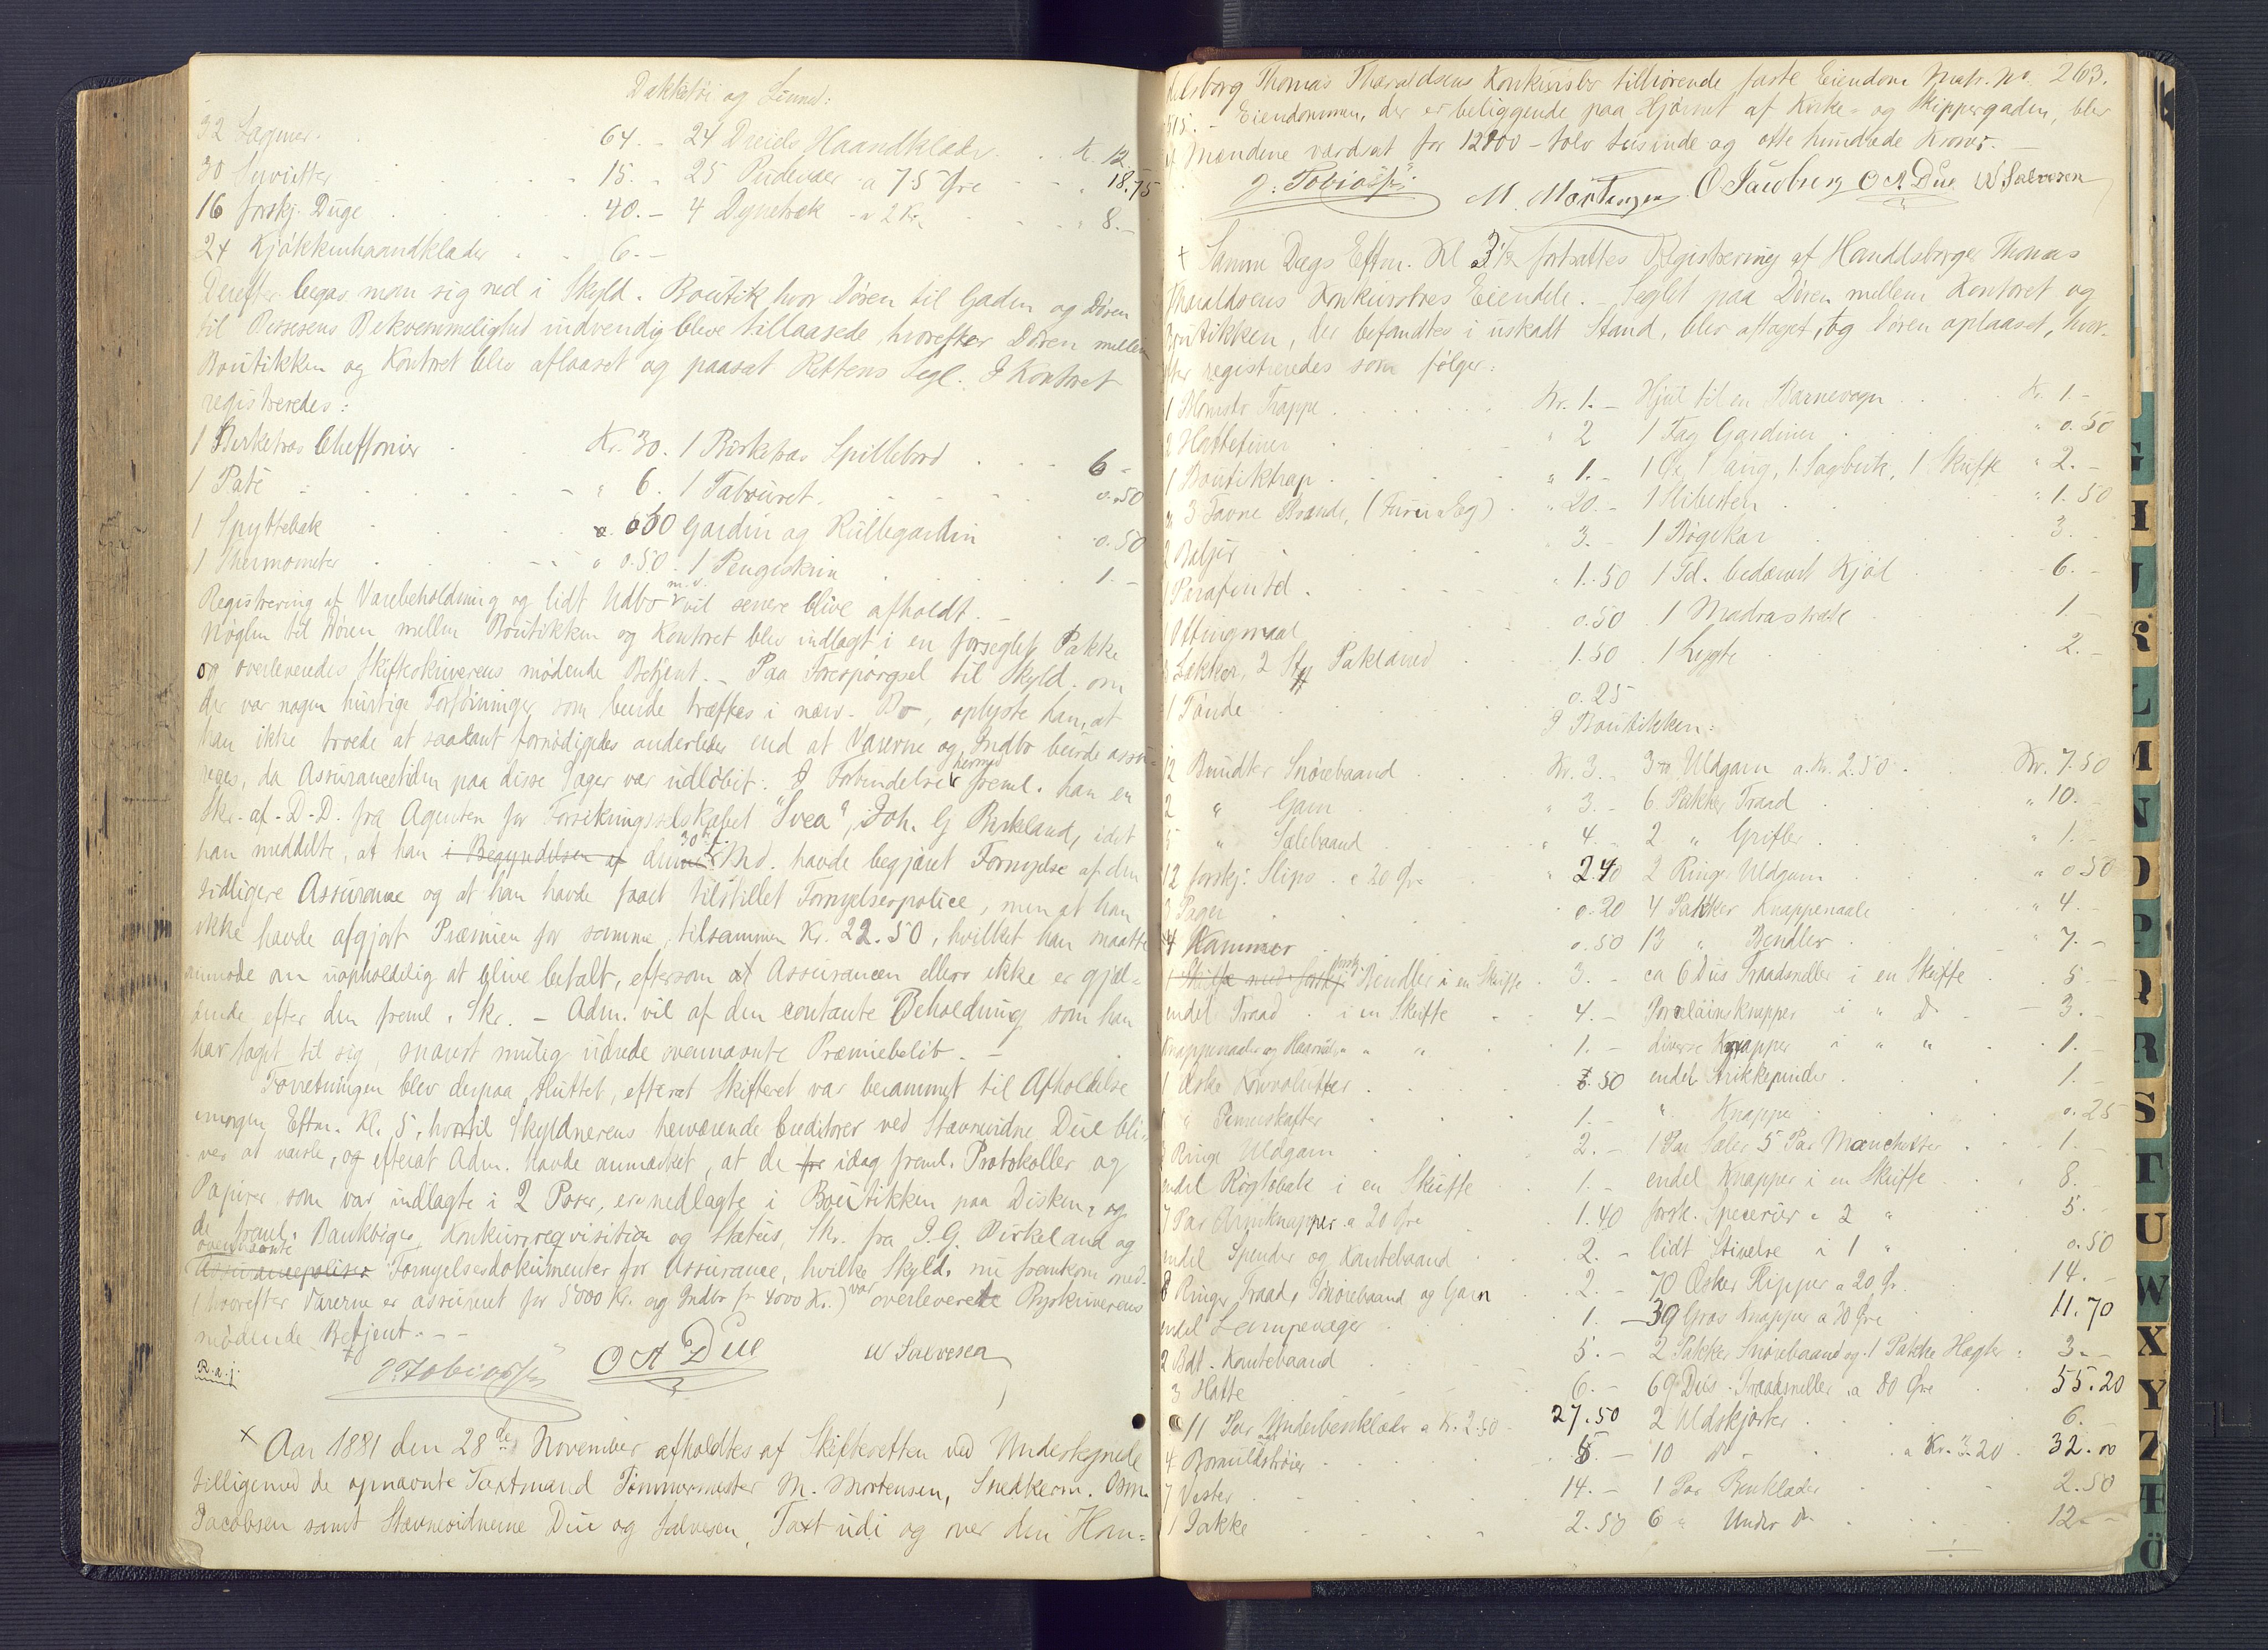 Dækketøi og Linned:
32 Lagener. 64. - 24 Dreiels Haandklæder. K. 12.
30 Servietter 15. - 25 Pudevaer a 75 Øre " 18.75
16 forskj. Duge 40. - 4 Dynetræk a 2 Kr. " 8.-
24 Kjøkkenhaandklæder 6.-
Derefter begav man sig ned i Skyld. Boutik hvor Døren til Gaden og Døren
til Bekvemmelighed indvendig bleve tillaasede, hvorefter Døren mellem
Boutikken og Kontoret blev aflaaset og paasat Rettens Segl. I Kontoret
registreredes:
1 Birketræs Cheffonier Kr. 30. 1 Birketræs Spillebord 6 -
1 Paté " 6. 1 Tabouret. 0.50
1 Spyttebak 0.50 Gardin og Rullegardin 0.50
1 Thermometer " 0.50. 1 Pengeskrin 1.-
Registrering af Varebeholdning og lidt Udbo m.v. vil senere blive afholdt. -
Nøglen til Døren mellem Boutikken og Kontoret blev indlagt i en forseglet Pakke
og overleveredes Skifteskriverens mødende Betjent. - Paa Forespørgsel til Skyld. om
der var nogen hurtige Forføininger som burde træffes i nærv. Bo, oplyste han, at
han ikke troede at saadant fornødigedes anderledes end at Varerne og Indbo burde assu-
reres, da Assurancetiden paa disse Sager var udløbet: I Forbindelse hermed freml. han en
Skr. af D.D. fra Agenten for Forsikringsselskabet "Svea", Joh. G. Birkeland, idet
han meddelte, at han i Begyndelsen af denne 30te f. Md. havde begjæret Fornyelse af den
tidligere Assurance og at han havde faaet tilstillet Fornyelsespolice, men at han
ikke havde afgjort Præmien for samme, tilsammen Kr. 22.50, hvilket han maatte
anmode om uopholdelig at blive betalt, eftersom at Assurancen ellers ikke er gjæl-
dende efter den freml. Skr. - Adm. vil af den contante Beholdning som han
har taget til sig, snarest mulig udrede ovennævnte Præmiebeløb. -
Forretningen blev derpaa sluttet, efterat Skifteret var berammet til Afholdelse
imorgen Eftm. Kl. 5, hvortil Skyldnerens herværende Creditorer ved Stævnevidne Due bli-
ver at varsle, og efterat Adm. havde anmærket, at de fre idag freml. Protokoller og
Papirer som var indlagte i 2 Poser, ere nedlagte i Boutikken paa Disken, og
de freml. Bankbøger, Konkursrequisition og Status, Skr. fra J. G. Birkeland og
ovennævnte Assurancepolicer Fornyelsesdokumenter for Assurance, hvilke Skyld. nu fremkom med
(hvorefter Varerne er assureret for 5000 Kr. og Indbo for 4000 Kr.) var overleverede Byskriverens
mødende Betjent. - -
R. a. j. O. Tobiassen O A Due W Salvesen
+ Aar 1881 den 28de November afholdtes af Skifteretten ved Undertegnede
tilligemed de opnævnte Taxtmænd Tømmermester M. Mortensen, Snedkerm. Osm.
Jacobsen samt Stævnevidnerne Due og Salvesen, Taxt udi og over den Han-
delsborg Thomas Tharaldsens Konkursbo tilhørende faste Eiendom Matr. No 263.
515. - Eiendommen, der er beliggende paa Hjørnet af Kirke- og Skippergaden, blev
af Mændene værdsat for 12800 - tolv tusinde og otte hundrede Kroner. -
O. Tobiassen M. Mortensen O Jacobsen O A Due W Salvesen
+ Samme Dags Eftm. Kl 3 1/2 fortsattes Registrering af Handelsborger Thomas
Tharaldsens Konkursboes Eiendele. - Seglet paa Døren mellem Kontoret og
Boutikken, der befandtes i uskadt Stand, blev aftaget, og Døren oplaaset, hvor-
efter registreredes som følger:
1 Blomster Trappe Kr. 1. - Hjul til en Barnevogn Kr. 1. -
2 Hattefiner " 2 1 Fag Gardiner " 0.50
1 Boutiktrap " 1. - 1 Øx, 1 Saug, 1 Sagbuk, 1 Skuffe " 2. -
3 Favne Brænde, (Furu & Eg) " 20. - 1 Slibesten " 1.50
2 Baljer 3. - 1 Bøgekar 3. -
1 Parafintd. " 1.50 1 Td. bedærvet Kjød 6. -
1 Ottingmaal 0.50 1 Madrasstræk 1. -
Sækker, 2 Stk Paklærred 1.50 1 Lygte 2. -
1 Tønde 0.25
I Boutikken:
12 Bundter Snørebaand Kr. 3. 3 Uldgarn a Kr. 2.50 Kr. 7.50
2 " Garn " 3. - 6 Pakker Traad " 10. -
5 " Sælebaand " 4. - 2 " Grifler " 1. -
12 forskj. Slips a 20 Øre " 2.40 2 Ringe Uldgarn " 0.50
0.20 4 Pakker Knappenaale " 4. -
4 Kammer 0.50 13 " Bendler " 7. -
1 Skuffe med forskj. forsk. Bendler i en Skuffe 3. - ca 6 Dus Traadsneller i en Skuffe 5 -
endel Traad i en Skuffe 4. - Porcelainsknapper i " Do 3. -
Knappenaaler og Haarnaale " " 1. - diverse Knapper i " " 1. -
1 Æske .50 endel Strikkepinder 1. -
1 " Penneskafter 1. - " Knapper 0.25
3 Ringe Uldgarn 2. - 1 Par Sæler 5 Par Manchetter 1. -
endel Røgtobak i en Skuffe 1. - endel Knapper i en Skuffe 8. -
7 Par Armknapper a 20 Øre 1.40 forsk. Specerier i 2 " 5. -
endel Spender og Kantebaand 2. - lidt Stivelse i 1 " 0.50
8 Ringer Traad, Snørebaand og Garn 2. - 70 Æsker Ripper a 20 Ør. 14. -
endel Lampevæger 1. - 39 Gros Knapper a 30 Øre 11.70
2 Bdt. Kantebaand 5. - 2 Pakker Snørebaand og 1 Pakke Hægter 3. -
3 Hatte 6. - 69 Dus. Traadsneller a 80 Øre 55.20
11 Par Underbenklæder a Kr. 2.50 27.50 2 Uldskjorter 6. -
4 Bomuldstrøier 5. - 10 do a Kr. 3.20 32.00
7 Vester 14. - 1 Par Benklæder 2.50
1 Jakke 2.50 6 " Under do 12. -
G
H
I
J
K
L
M
N
O
P
Q
R
S
T
U
W
X
Y
Z
Æ
Ö